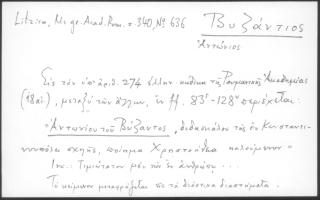 Litzica, Ms gr. Acad. Rom. σ 340, No 636
Βυζάντιος
Ἀντώνιος
Εἰς τὸν ὑπ' ἀριθ. 274 ἑλλην. κώδικα τῆς Ῥουμανικῆς Ἀκαδημίας
(18 αἰ.), μεταξὺ τῶν ἄλλων, ἐν ff. 83ʳ-128ᵛ περιέχεται:
"Ἀντωνίου τοῦ Βύζαντος, διδασκάλου τῆς ἐν Κωνσταντι-
νουπόλει σχολῆς, ποίημα Χρηστοήθεια καλούμενον"
Inc.: Τιμιώτατον μὲν τῶν ἐν ἀνθρώποις ...
Τὸ κείμενον μεταφράζεται εἰς τὰ διάστιχα διαστήματα.